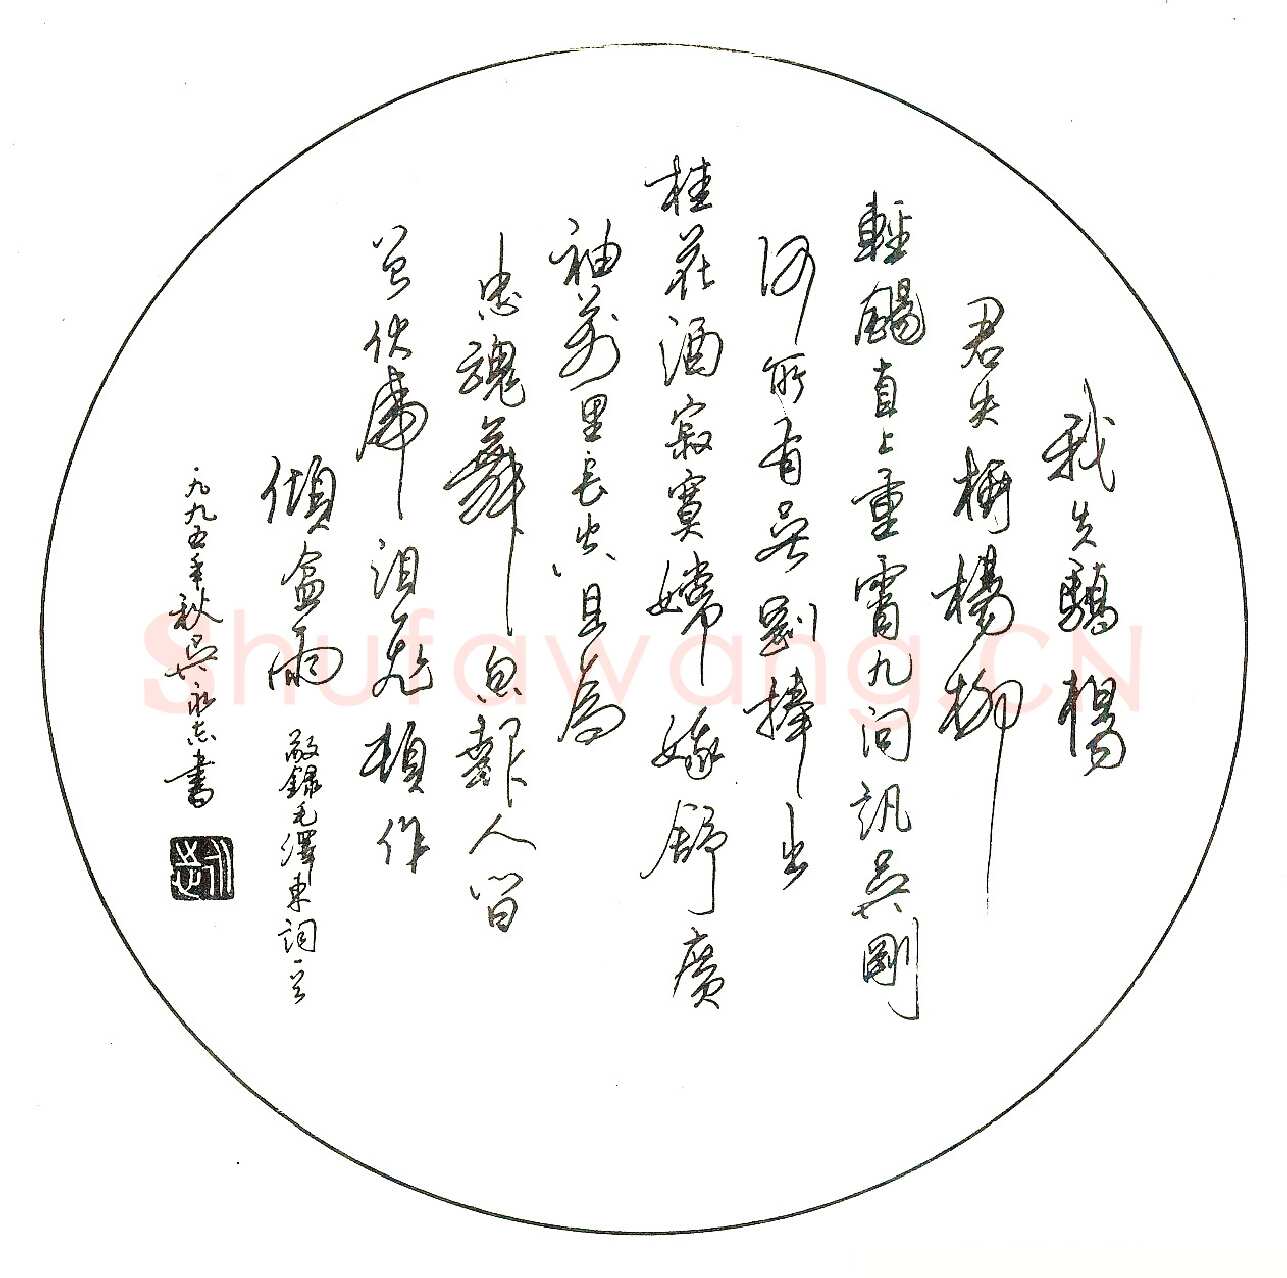 我失驕楊
君失柳楊柳
輕颺直上重霄九问訊吳剛
何所有吳剛捧出
桂花酒寂寞嫦娥舒廣
袖萬里長空且為
忠魂舞忽報人間
曾伏虎泪飛頓作
傾盆雨 敬錄毛澤東詞一首
一九九五年秋吳永志書
永志
Shufawang.CN